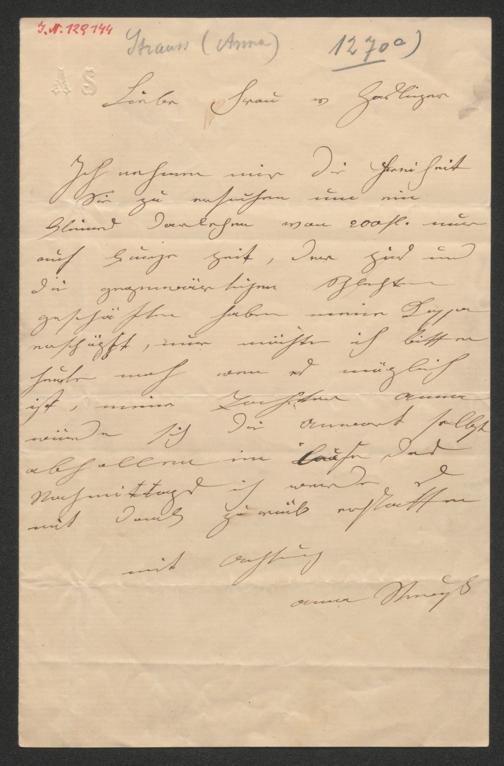 J.N. 129144
Strauss (Anna)
1270a)
A S
Liebe Frau v
Ich nehme mir die Freiheit
Sie zu ersuchen um ein
kleines Darlehen von 200 fl. nur
auf kurze Zeit, der und
die gegenwärtigen schlechten
geschäften haben meine Kassa
erschöpft, nur möchte ich bitten
heute noch wen es möglich
ist, meine Tochter Anna
würde sich die Antwort selbst
abhollen im laufe des
Nachmittags ich werde es
mit Dank zurück erstatten
mit Achtung
Anna Strauß